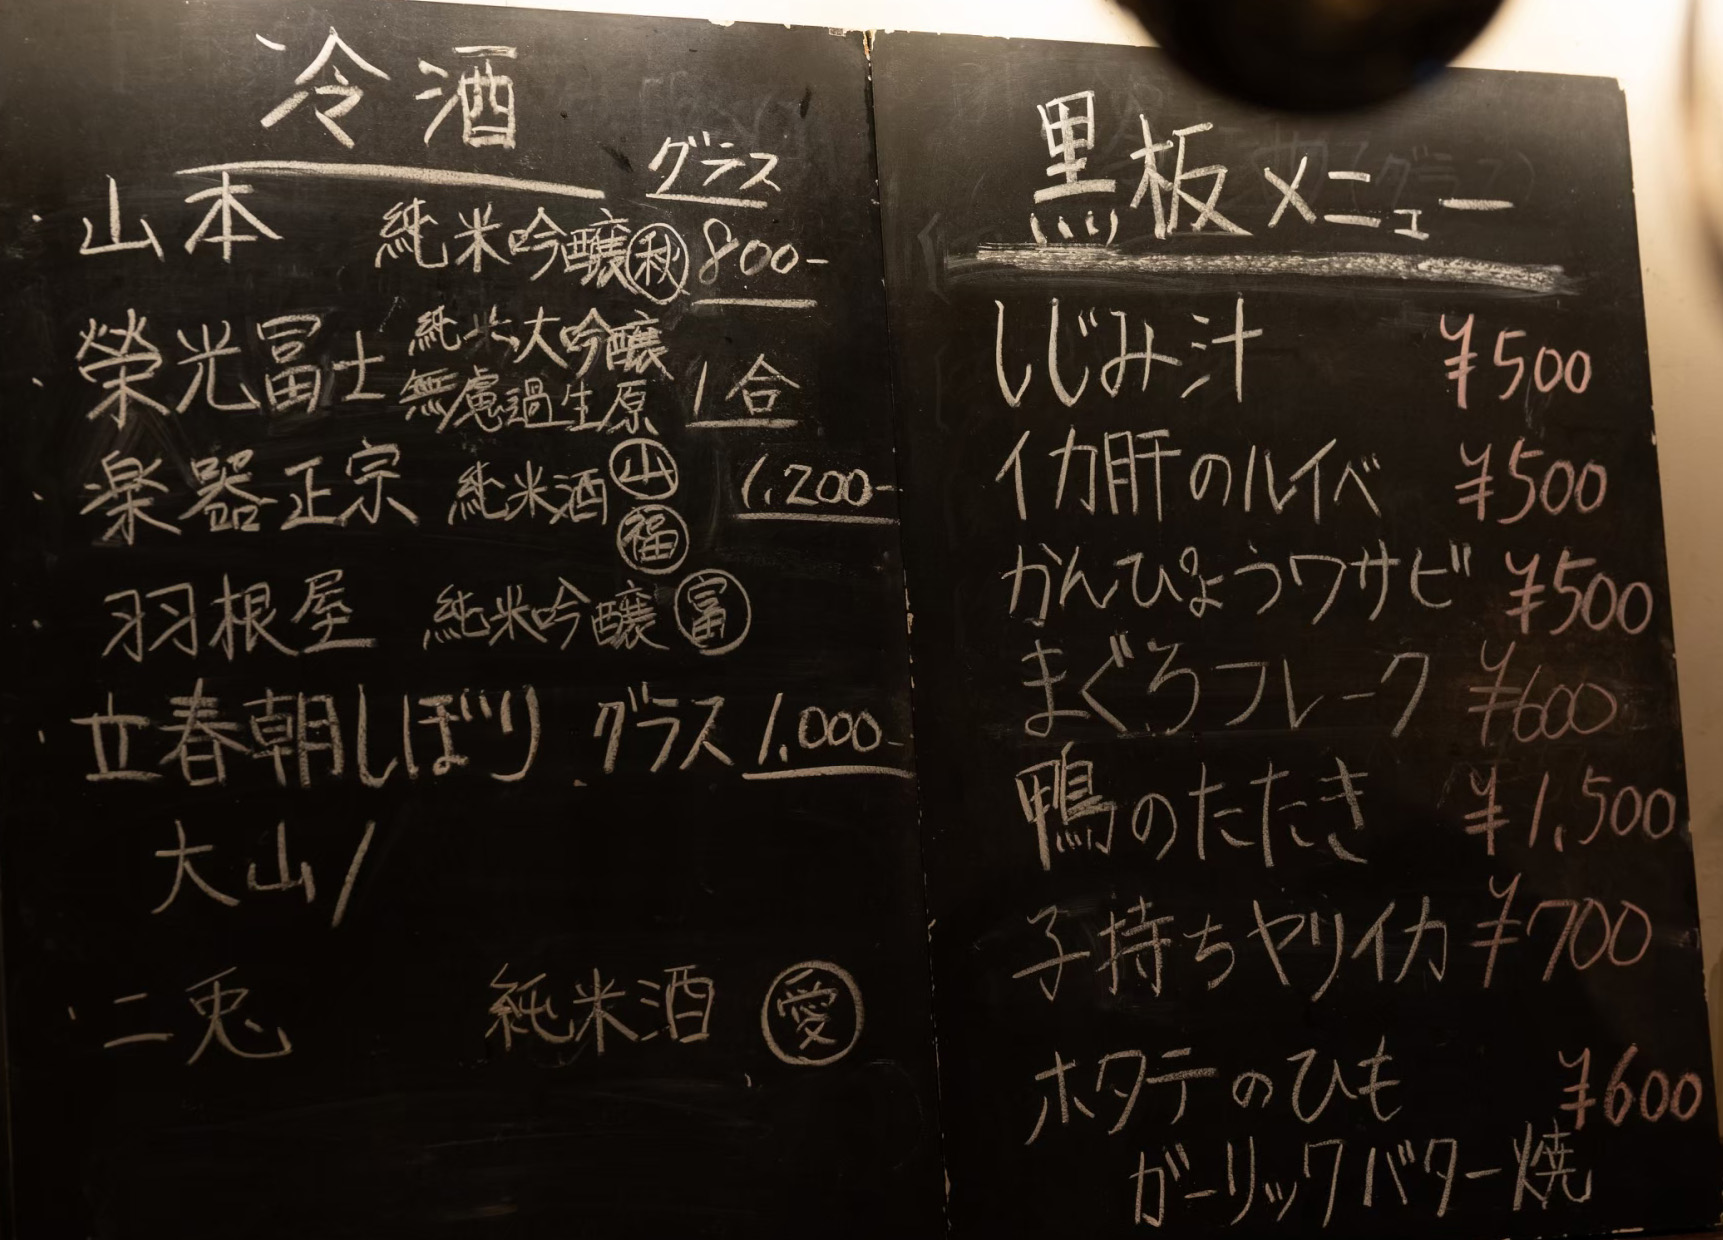 冷酒
グラス
・山本 純米吟醸㊙秋 800-
・榮光冨士 純米大吟醸
無慮過生原 1合
・楽器正宗 純米酒 山 福 1,200-
・羽根屋 純米吟醸 富
・立春朝しぼり グラス 1,000-
大山/
・二兎 純米酒 愛
黒板メニュー
しじみ汁 ¥500
イカ肝のルイベ ¥500
かんぴょうワサビ ¥500
まぐろフレーク ¥600
鴨のたたき ¥1,500
子持ちヤリイカ ¥700
ホタテのひも ¥600
ガーリックバター焼